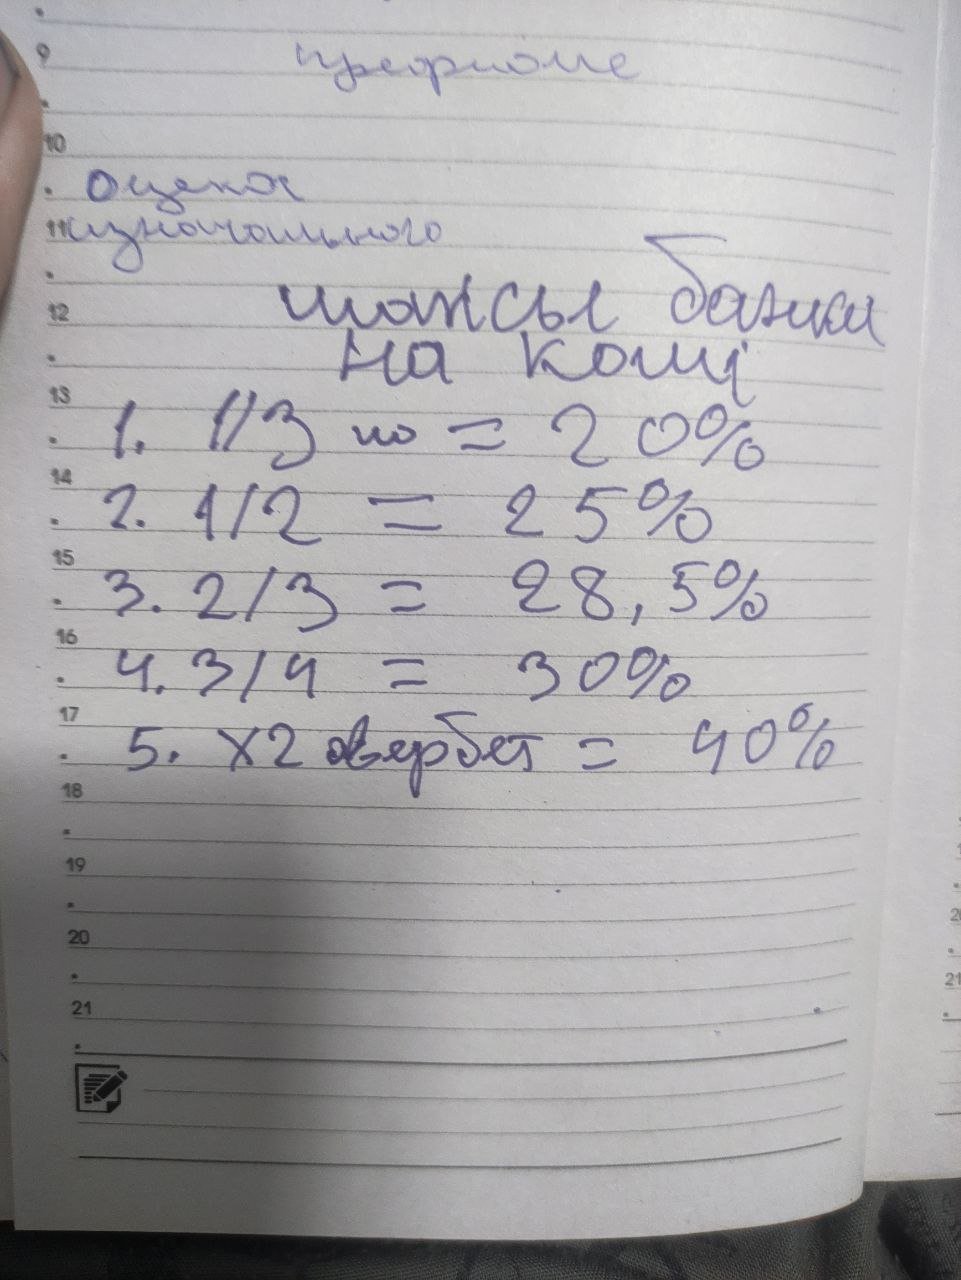 9
префломе
10
оценка
11 изначального
шансы банки
12
на колі
13
1. 1/3 но = 20%
14
2. 1/2 = 25%
15
3. 2/3 = 28,5%
16
4. 3/4 = 30%
17
5. x2 овербет = 40%
18
19
20
21
20
21